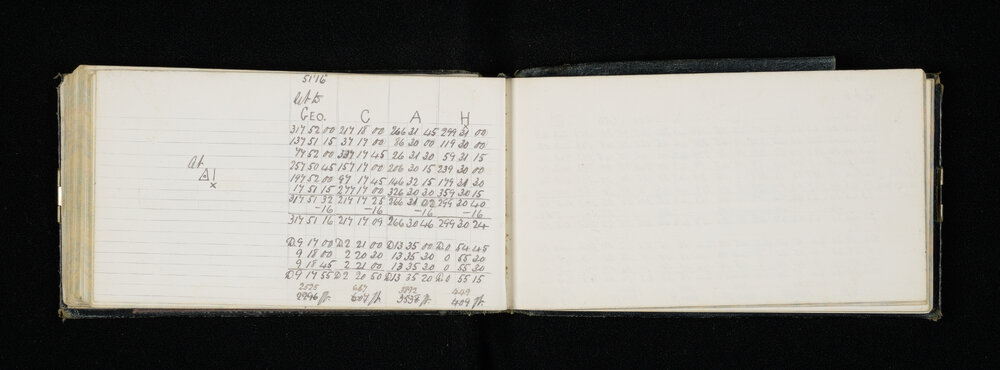 5176
At
GEO. C A H
317 52 00 217 18 00 266 31 45 299 31 00
137 51 15 37 17 00 86 30 00 119 30 00
77 52 00 337 17 45 26 31 30 59 31 15
257 50 45 157 17 00 206 30 15 239 30 00
197 52 00 97 17 45 146 32 15 179 31 30
17 51 15 277 17 00 326 30 30 359 30 15
317 51 32 217 17 25 266 31 02 299 30 40
-16 -16 -16 -16
317 51 16 217 17 09 266 30 46 299 30 24
At
A1
x
D 9 17 00 D 2 21 00 D 13 35 00 D 0 54 45
9 18 00 2 20 30 13 35 30 0 55 30
9 18 45 2 21 00 13 35 30 0 55 30
D 9 17 55 D 2 20 50 D 13 35 20 D 0 55 15
2525 667 3892 449
2296 ft. 607 ft. 3538 ft. 409 ft.